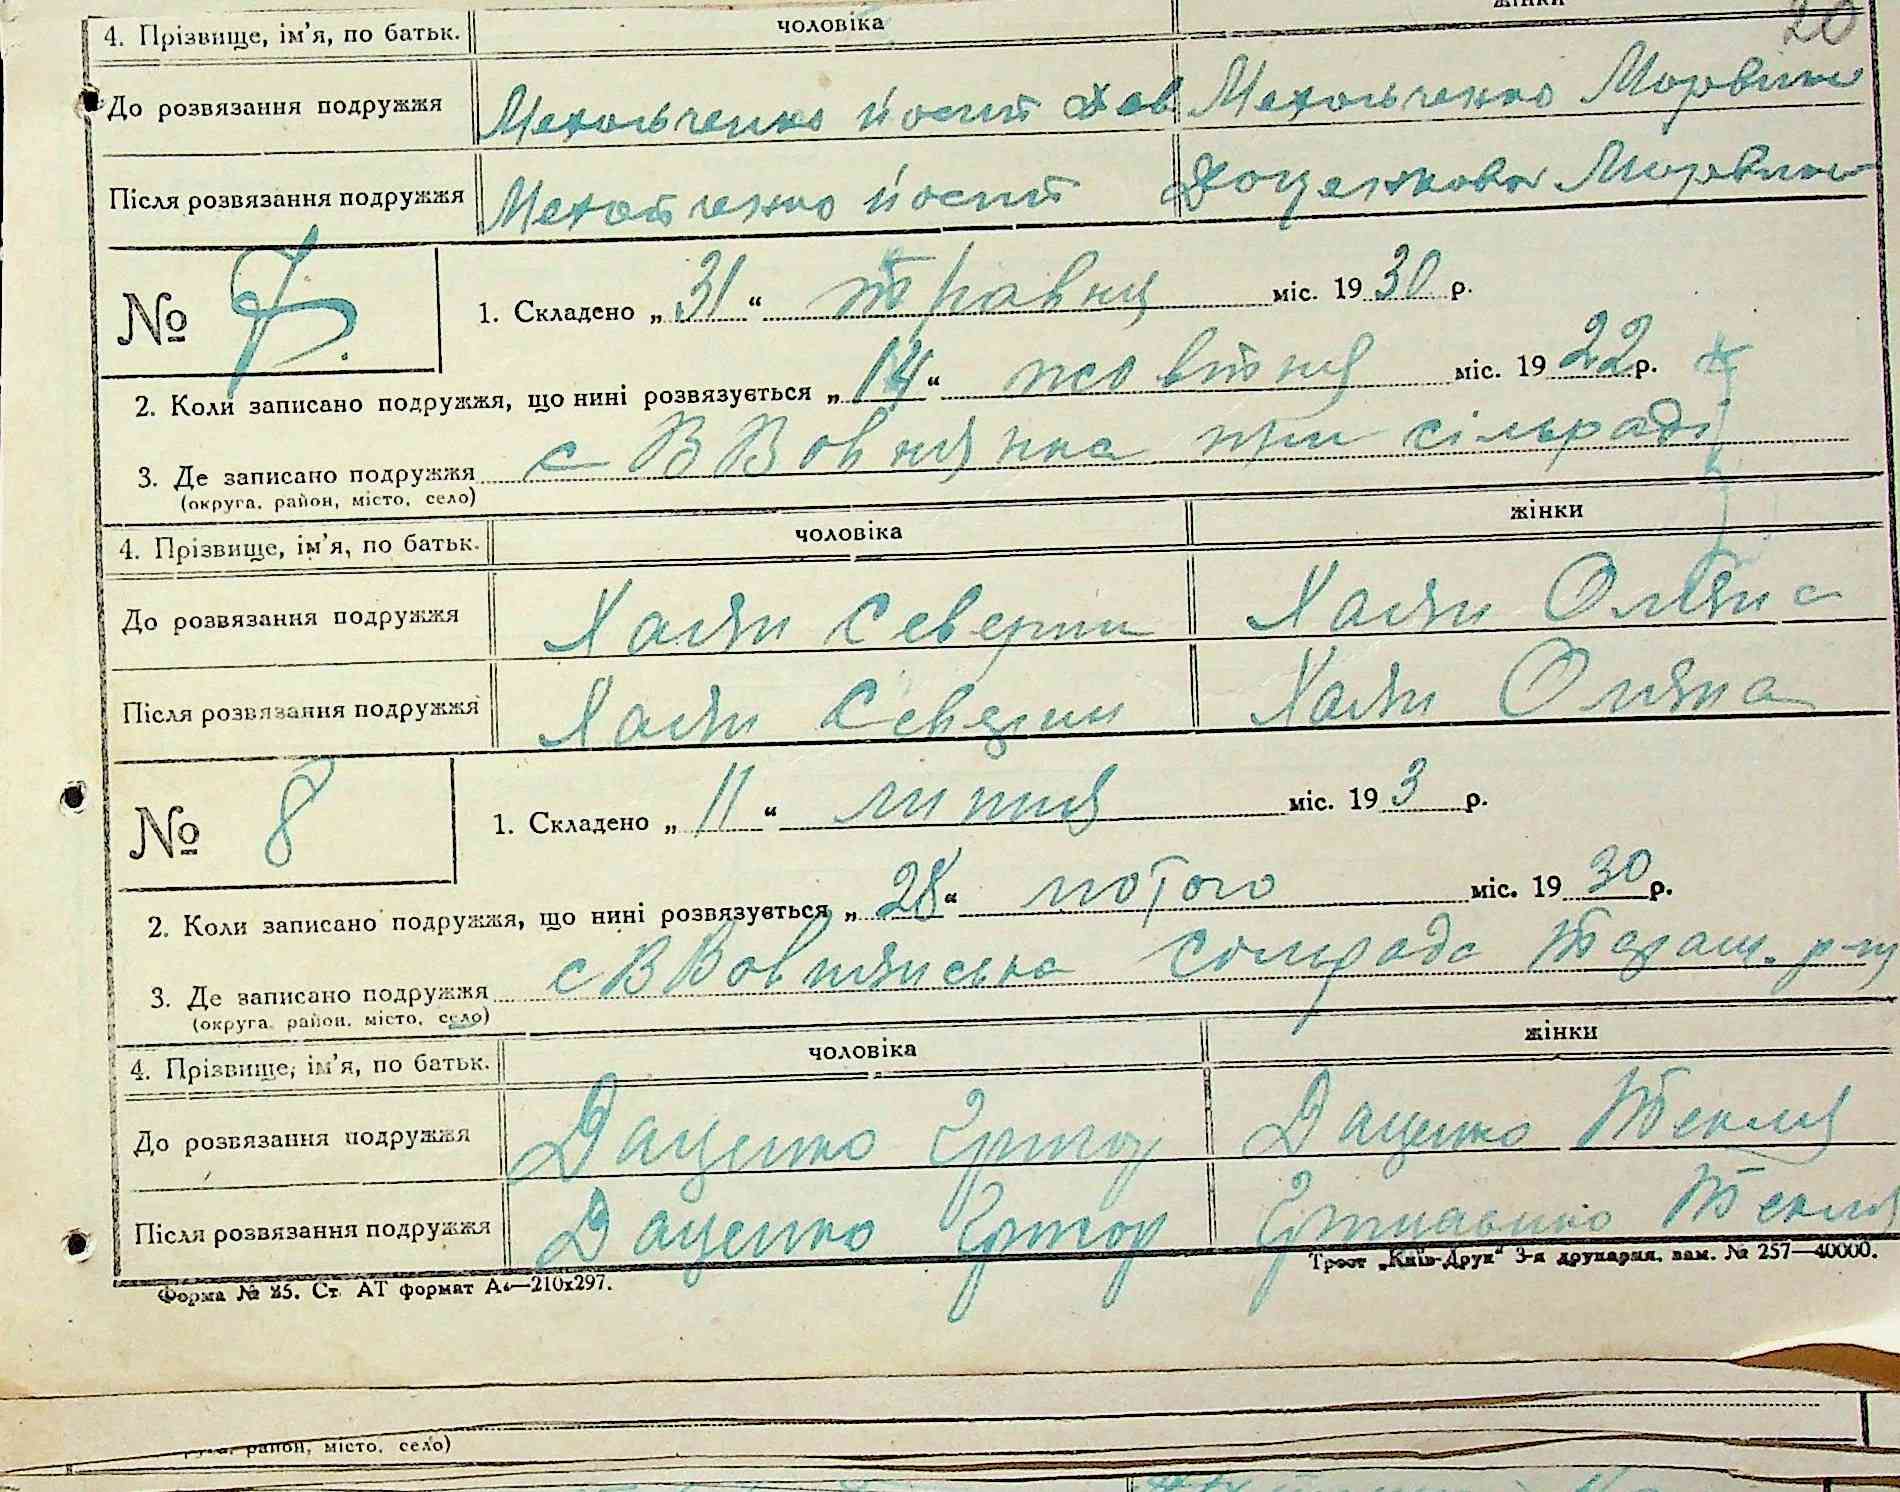 жінки
20
4. Прізвище, ім'я, по батьк. чоловіка
До розвязання подружжя Мехольченко Йосип Мехольченко
Після розвязання подружжя Йосип Доценкова
№ 7. 1. Складено „31“ травня міс. 1930 р.
2. Коли записано подружжя, що нині розвязується „14“ жовтня міс. 1922 р.
3. Де записано подружжя с В Вовнянка при сільраді
(округа, район, місто, село)
4. Прізвище, ім'я, по батьк. чоловіка жінки
До розвязання подружжя Северин
Після розвязання подружжя Северин Оляна
№ 8 1. Складено „11“ липня міс. 193 р.
2. Коли записано подружжя, що нині розвязується „28“ лютого міс. 1930 р.
3. Де записано подружжя с В сільрада Таращ. р-ну
(округа, район, місто, село)
4. Прізвище, ім'я, по батьк. чоловіка жінки
До розвязання подружжя Даценко Григор Даценко Текля
Після розвязання подружжя Даценко Григор Текля
Форма № 25. Ст. АТ формат А4—210x297. Трест „Київ-Друк“ 3-я друкарня, зам. № 257—40000.
район, місто, село)